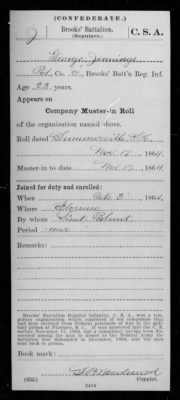 (CONFEDERATE.)
J Brooks' Battalion. C. S. A.
(Regulars.)
George Jennings
Pvt, Co. , Brooks' Batt'n Reg. Inf.
Age 23 years.
Appears on
Company Muster-in Roll
of the organization named above.
Roll dated Summerville S.C.
Nov 17, 1864.
Muster-in to date Nov 17, 1864.
Joined for duty and enrolled:
When Oct 3, 1864.
Where Florence
By whom Lieut. Blunt
Period war
Remarks:
Brooks' Battalion Regular Infantry, C. S. A., was a
organization which consisted of six companies that
had been
prison at Florence, S. C. It was mustered into the C. S.
service November 1864, but a conspiracy having been
among the men to desert to the Federal Army the
battalion was in December, 1864, and the
men sent back to prison.
Book mark:
(635) Copyist.